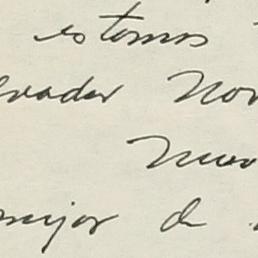 estamos
lvador Nor
Nuev
mejor de